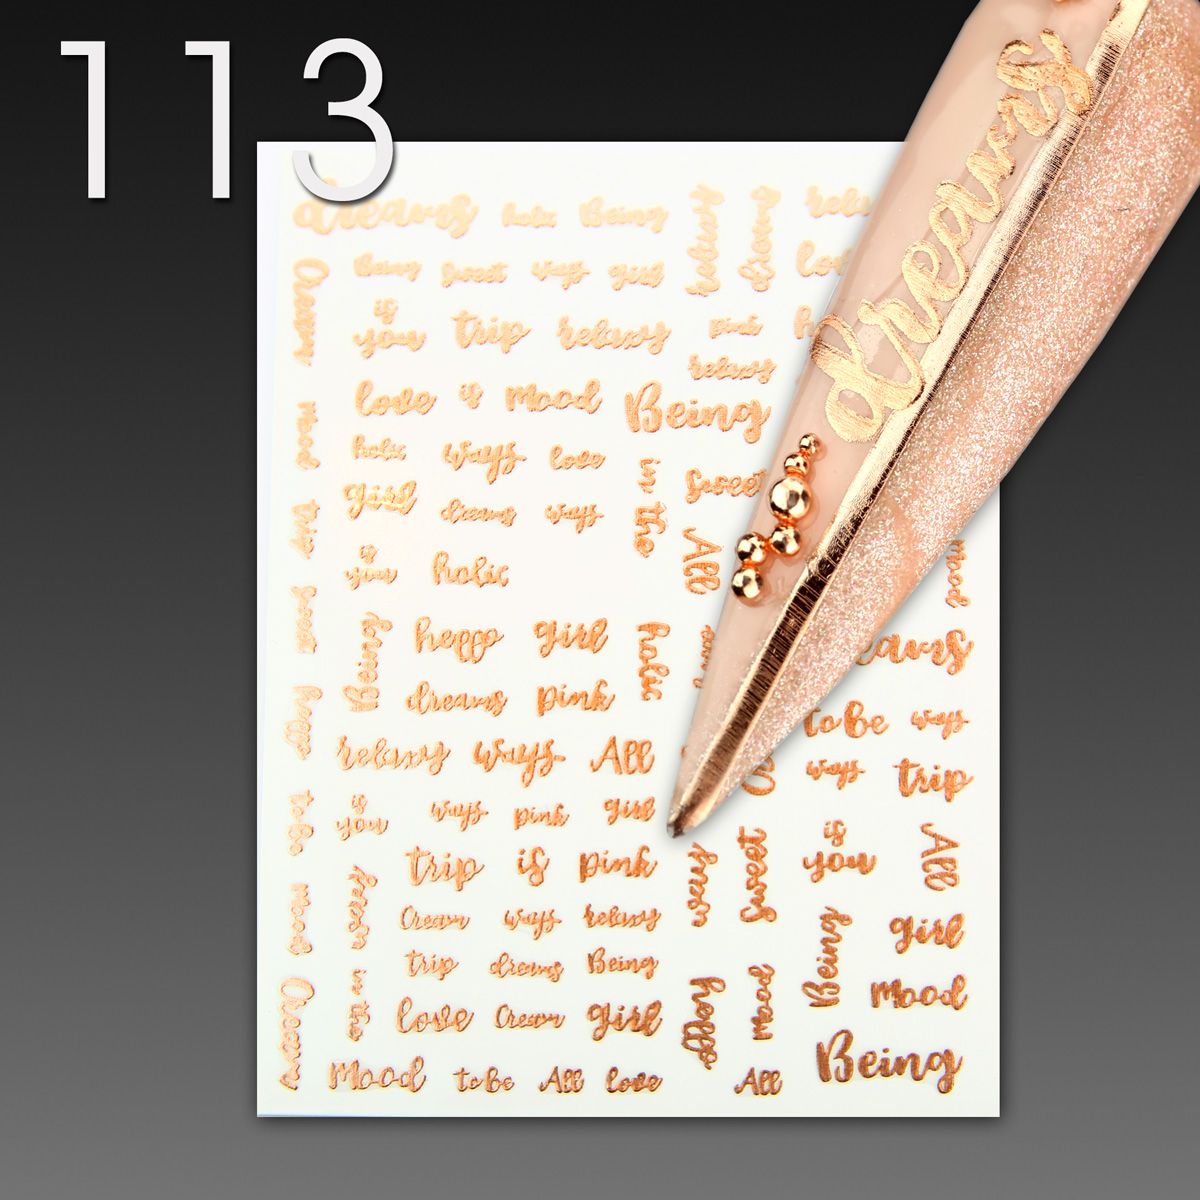 113
dreams
dreams holic Being relaxy dreams
Being Sweet ways girl
Cream is you trip relaxy pink
relaxy
love is Mood Being
Mood holic ways love
girl dreams ways in the Sweet
trip is you holic All Mood
good Being heffo girl holic
dreams pink
heffo relaxy ways All to be ways
ways trip
to be is you ways pink girl
trip is pink ways Sweet is you All
Mood Cream ways relaxy Being girl
trip dreams Being
Cream in the love Cream girl heffo Mood Mood
Mood to be All love All Being